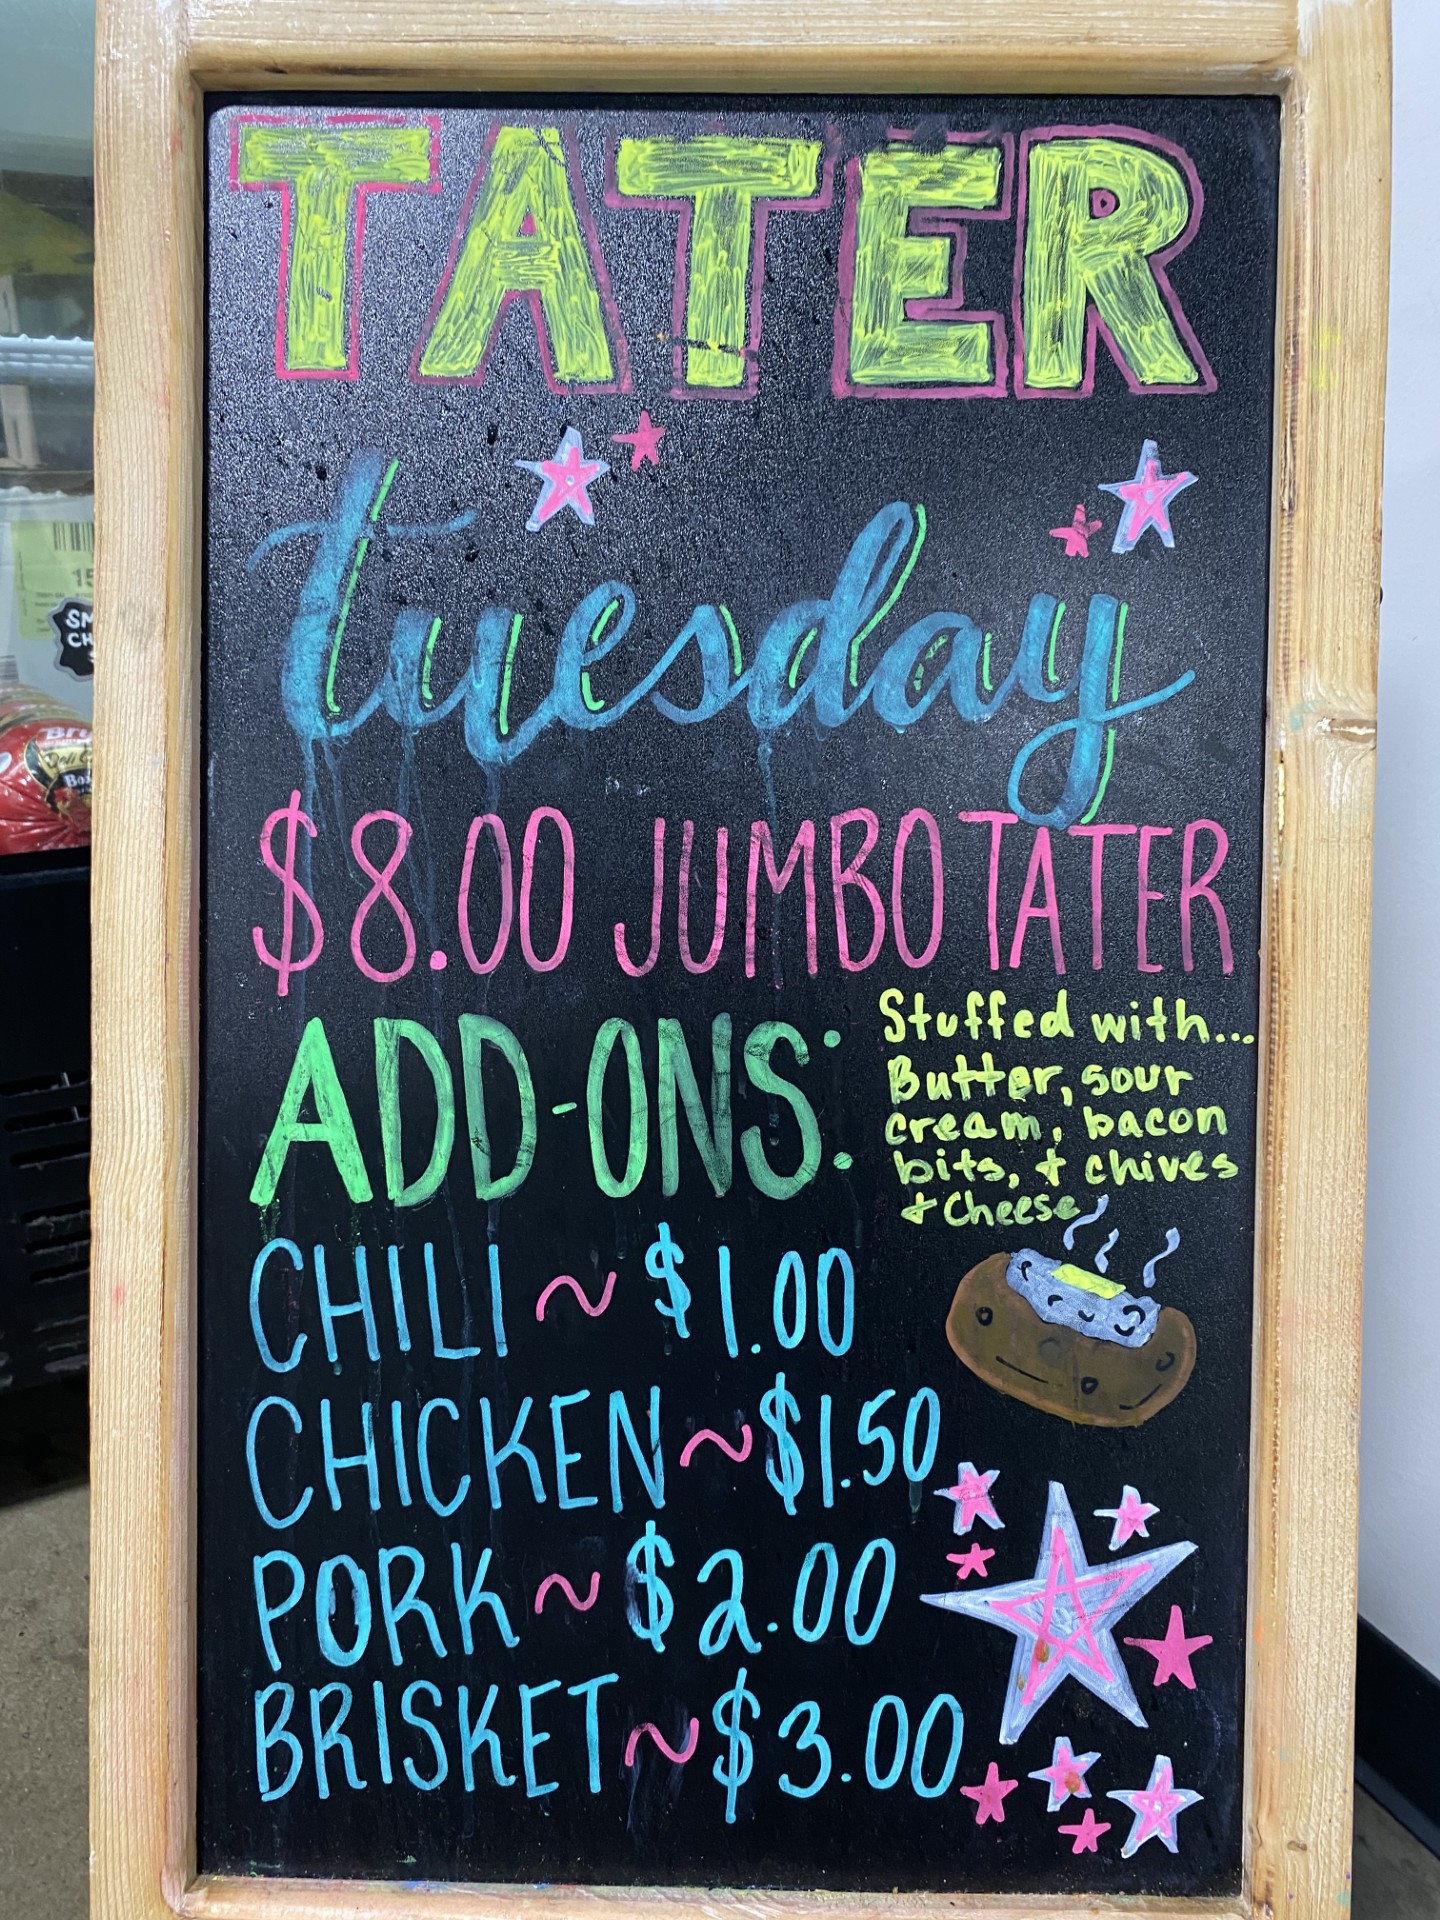 TATER
tuesday
$8.00 JUMBO TATER
ADD-ONS:
Stuffed with...
Butter, sour
cream, bacon
bits, + chives
+ Cheese
CHILI ~ $1.00
CHICKEN ~ $1.50
PORK ~ $2.00
BRISKET ~ $3.00
15
SM
CH
Bry
Deli
Bo